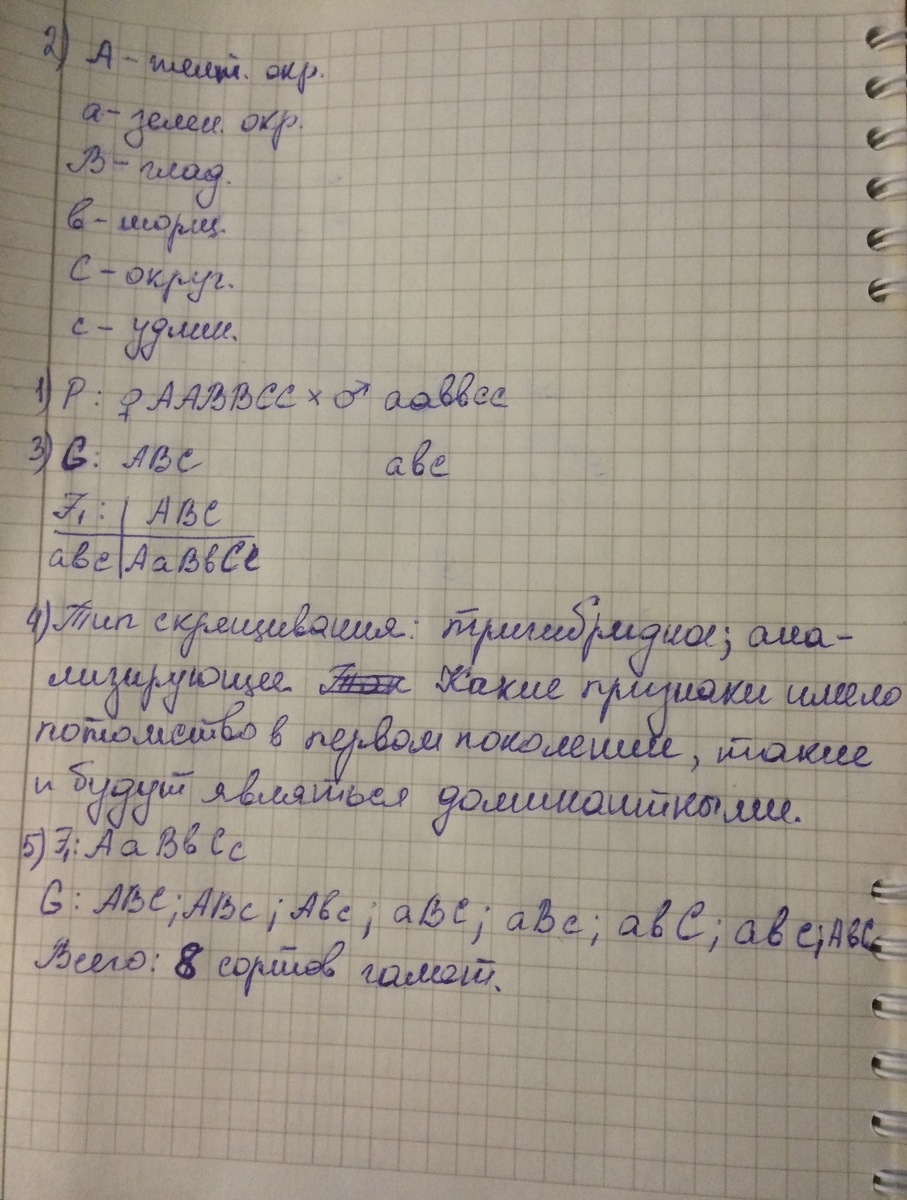 2) А - желт. окр.
а - зелен. окр.
В - глад.
в - морщ.
С - округ.
с - удлин.
1) Р: ♀ ААВВСС × ♂ааввсс
3) G: АВС авс
F₁: | АВС
авс | АаВвСс
4) Тип скрещивания: тригибридное; ана-
лизирующее. Какие признаки имело
потомство в первом поколении, такие
и будут являться доминантными.
5) F₁: АаВвСс
G: АВС; АВс; Авс; аВС; аВс; авС; авс; АвС
Всего: 8 сортов гамет.